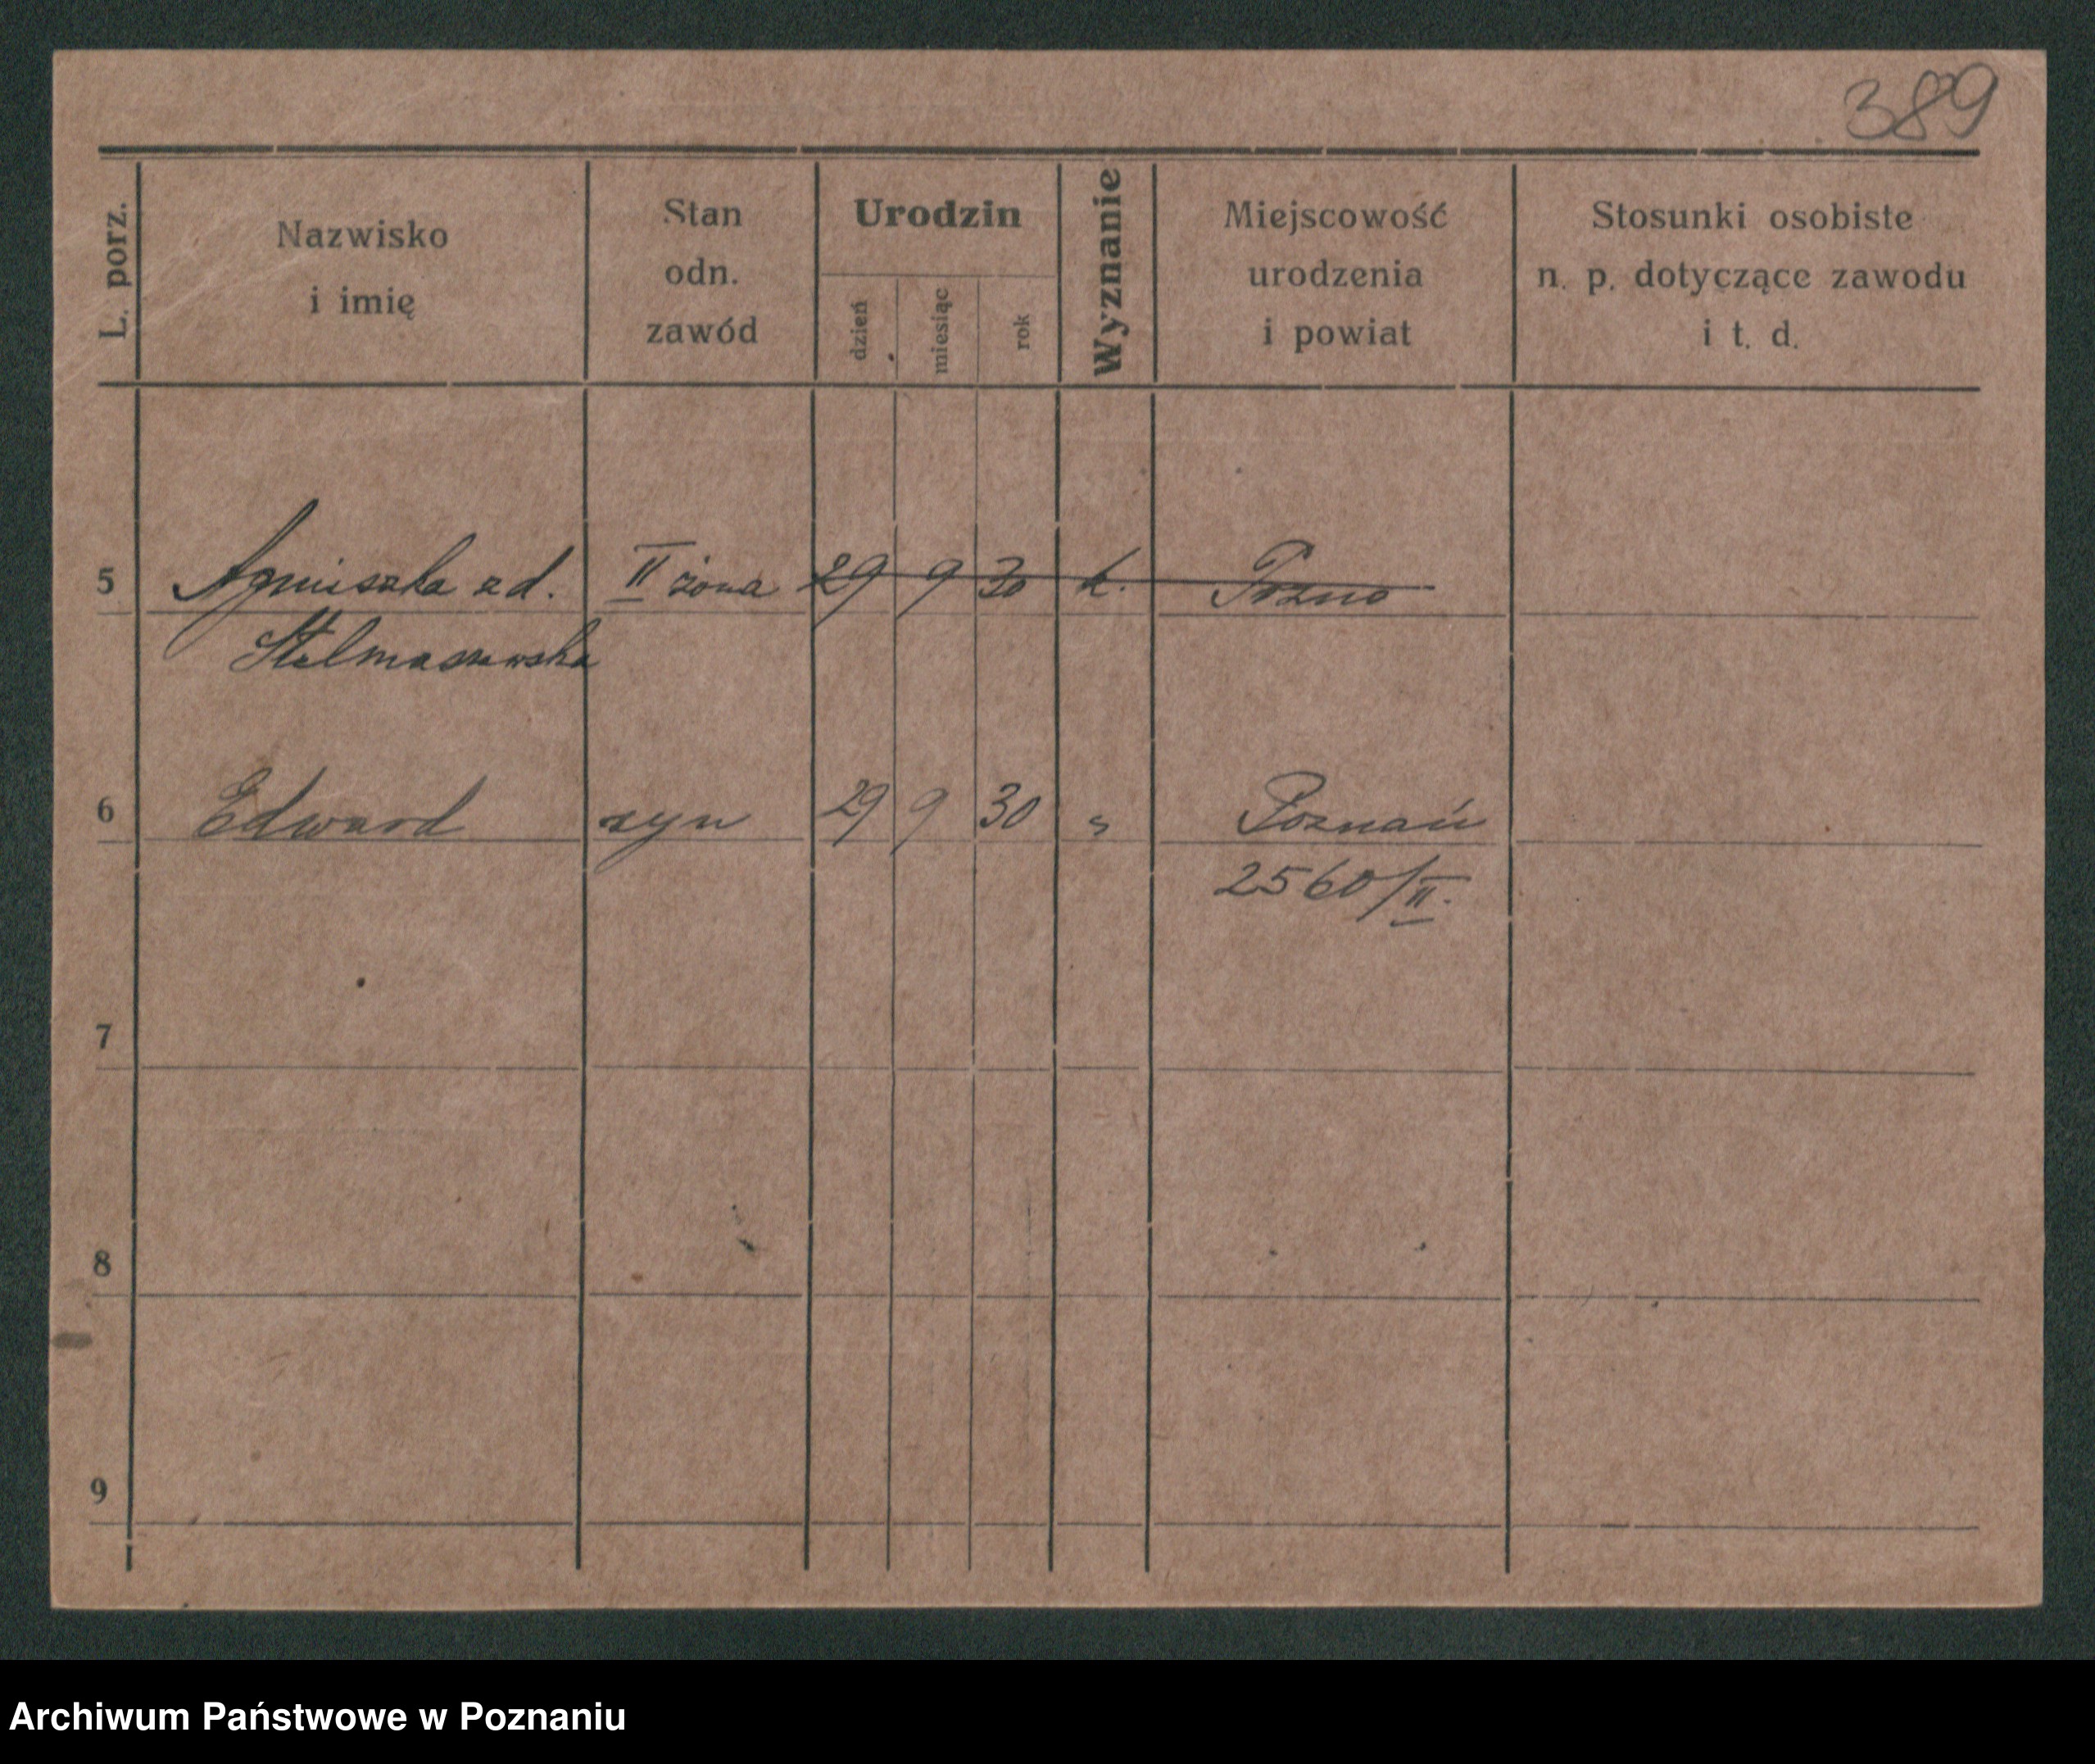 389
L. porz.
Nazwisko
i imię
Stan
odn.
zawód
Urodzin
dzień
miesiąc
rok
Wyznanie
Miejscowość
urodzenia
i powiat
Stosunki osobiste
n. p. dotyczące zawodu
i t. d.
5 Agnieszka zd. II żona 29 9 30 k. Pozno
Stelmaszewska
6 Edward syn 29 9 30 " Poznań
2560/II.
7
8
9
Archiwum Państwowe w Poznaniu